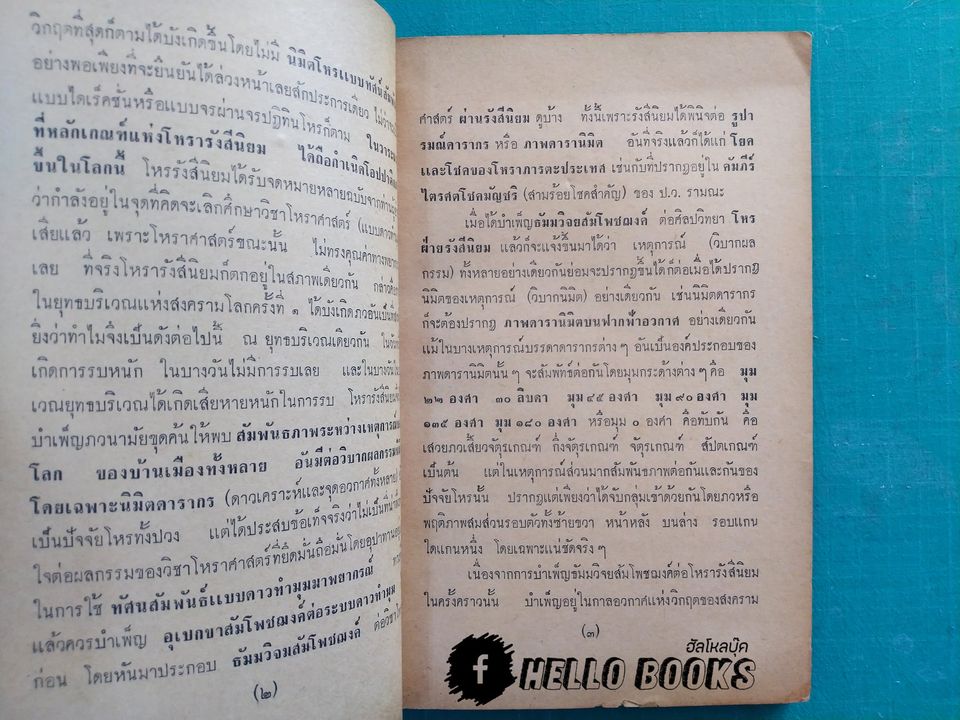 วิกฤตที่สุดก็ตามได้บังเกิดขึ้นโดยไม่มี นิมิตโหรแบบทัศน์สัมพั
อย่างพอเพียงที่จะยืนยันได้ล่วงหน้าเลยสักประการเดียว ไม่ว่าจะ
แบบไดเร็คชั่นหรือแบบจรผ่านจรปฏิทินโหรก็ตาม ในวาระ
ที่หลักเกณฑ์แห่งโหรารังสีนิยม ได้ถือกำเนิดโอปปาติ
ขึ้นในโลกนี้ โหรรังสีนิยมได้รับจดหมายหลายฉบับจากท่าน
ว่ากำลังอยู่ในจุดที่คิดจะเลิกศึกษาวิชาโหราศาสตร์ (แบบดาว
เสียแล้ว เพราะโหราศาสตร์ขณะนั้น ไม่ทรงคุณค่าทางพยาก
เลย ที่จริงโหรารังสีนิยมก็ตกอยู่ในสภาพเดียวกัน กล่าวคือ
ในยุทธบริเวณแห่งสงครามโลกครั้งที่ ๑ ได้บังเกิดภวอันเป็น
ยิ่งว่าทำไมจึงเป็นดังต่อไปนี้ ณ ยุทธบริเวณเดียวกัน ใน
เกิดการรบหนัก ในบางวันไม่มีการรบเลย และในบางวัน
เวณยุทธบริเวณได้เกิดเสียหายหนักในการรบ โหรารังสีนิยม
บำเพ็ญภวนามัยขุดค้นให้พบ สัมพันธภาพระหว่างเหตุการณ์
โลก ของบ้านเมืองทั้งหลาย อันมีต่อวิบากผลกรรม
โดยเฉพาะนิมิตดารากร (ดาวเคราะห์และจุดอวกาศทั้งหลาย)
เป็นปัจจัยโหรทั้งปวง แต่ได้ประสบข้อเท็จจริงว่าไม่เป็นที่น่า
ใจต่อผลกรรมของวิชาโหราศาสตร์ที่ยึดมั่นถือมั่นโดยอุปาทาน
ในการใช้ ทัศนสัมพันธ์แบบดาวทำมุมมาพยากรณ์
แล้วควรบำเพ็ญ อุเบกขาสัมโพชฌงค์ต่อระบบดาวทำมุม
ก่อน โดยหันมาประกอบ ธัมมวิจยสัมโพชฌงค์ ต่อวิชา
(๒)
ศาสตร์ ผ่านรังสีนิยม ดูบ้าง ทั้งนี้เพราะรังสีนิยมได้พินิจต่อ รูปา
รมณ์ดารากร หรือ ภาพดารานิมิต อันที่จริงแล้วก็ได้แก่ โยค
และโชคของโหราภารตะประเทศ เช่นกับที่ปรากฏอยู่ใน คัมภีร์
ไตรศตโชคมัญชริ (สามร้อยโชคสำคัญ) ของ ป.ว. รามณะ
เมื่อได้บำเพ็ญธัมมวิจยสัมโพชฌงค์ ต่อศิลปวิทยา โหร
ฝ่ายรังสีนิยม แล้วก็จะแจ้งขึ้นมาได้ว่า เหตุการณ์ (วิบากผล
กรรม) ทั้งหลายอย่างเดียวกันย่อมจะปรากฏขึ้นได้ก็ต่อเมื่อได้ปรากฏ
นิมิตของเหตุการณ์ (วิบากนิมิต) อย่างเดียวกัน เช่นนิมิตดารากร
ก็จะต้องปรากฏ ภาพดารานิมิตบนฟากฟ้าอวกาศ อย่างเดียวกัน
แม้ในบางเหตุการณ์บรรดาดารากรต่าง ๆ อันเป็นองค์ประกอบของ
ภาพดารานิมิตนั้น ๆ จะสัมพัทธ์ต่อกันโดยมุมกระด้างต่าง ๆ คือ มุม
๒๒ องศา ๓๐ ลิบดา มุม ๔๕ องศา มุม ๙๐ องศา มุม
๑๓๕ องศา มุม ๑๘๐ องศา หรือมุม ๐ องศา คือทับกัน คือ
เสวยภวเสี้ยวจัตุรเกณฑ์ กึ่งจัตุรเกณฑ์ จัตุรเกณฑ์ สัปตเกณฑ์
เป็นต้น แต่ในเหตุการณ์ส่วนมากสัมพันธภาพต่อกันและกันของ
ปัจจัยโหรนั้น ปรากฏแต่เพียงว่าได้จับกลุ่มเข้าด้วยกันโดยภวหรือ
พฤติภาพสมส่วนรอบตัวทั้งซ้ายขวา หน้าหลัง บนล่าง รอบแกน
ใดแกนหนึ่ง โดยเฉพาะแน่ชัดจริง ๆ
เนื่องจากการบำเพ็ญธัมมวิจยสัมโพชฌงค์ต่อโหรารังสีนิยม
ในครั้งคราวนั้น บำเพ็ญอยู่ในกาลอวกาศแห่งวิกฤตของสงคราม
(๓)
ฮัลโหลบุ๊ค
f HELLO BOOKS